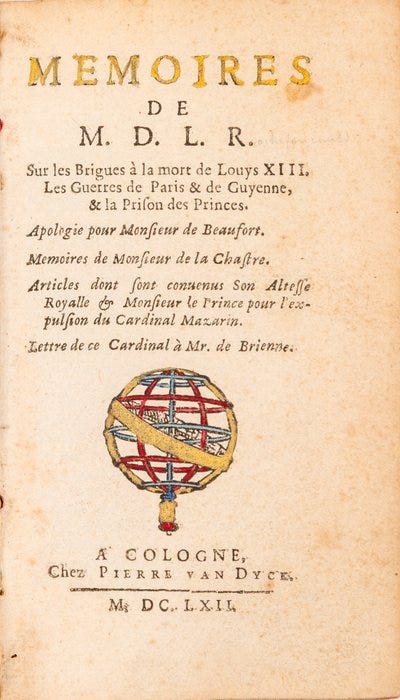 MEMOIRES
DE
M. D. L. R.
Sur les Brigues à la mort de Louys XIII,
Les Guerres de Paris & de Guyenne,
& la Priſon des Princes.
Apologie pour Monſieur de Beaufort.
Memoires de Monſieur de la Chaſtre.
Articles dont ſont conuenus Son Alteſſe
Royalle & Monſieur le Prince pour l'ex-
pulſion du Cardinal Mazarin.
Lettre de ce Cardinal à Mr. de Brienne.
A COLOGNE,
Chez PIERRE VAN DYCK.
M. DC. LXII.